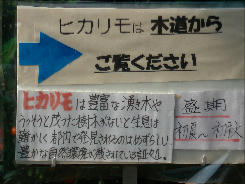 ヒカリモは 木道から
ご覧ください
ヒカリモは豊富な湧き水や
うっそうと茂った樹木がないと生息は
難かしく都内で発見されるのはめずらしい
豊かな自然環境が残されている証です。
盛期
初夏